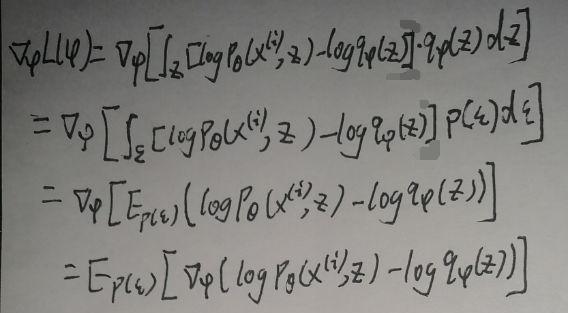 ∇φL(φ)=∇φ[∫z[logPθ(x⁽ⁱ⁾,z)-logqφ(z)]·qφ(z)dz]
=∇φ[∫ε[logPθ(x⁽ⁱ⁾,z)-logqφ(z)]p(ε)dε]
=∇φ[Ep(ε)(logPθ(x⁽ⁱ⁾,z)-logqφ(z))]
=Ep(ε)[∇φ(logPθ(x⁽ⁱ⁾,z)-logqφ(z))]